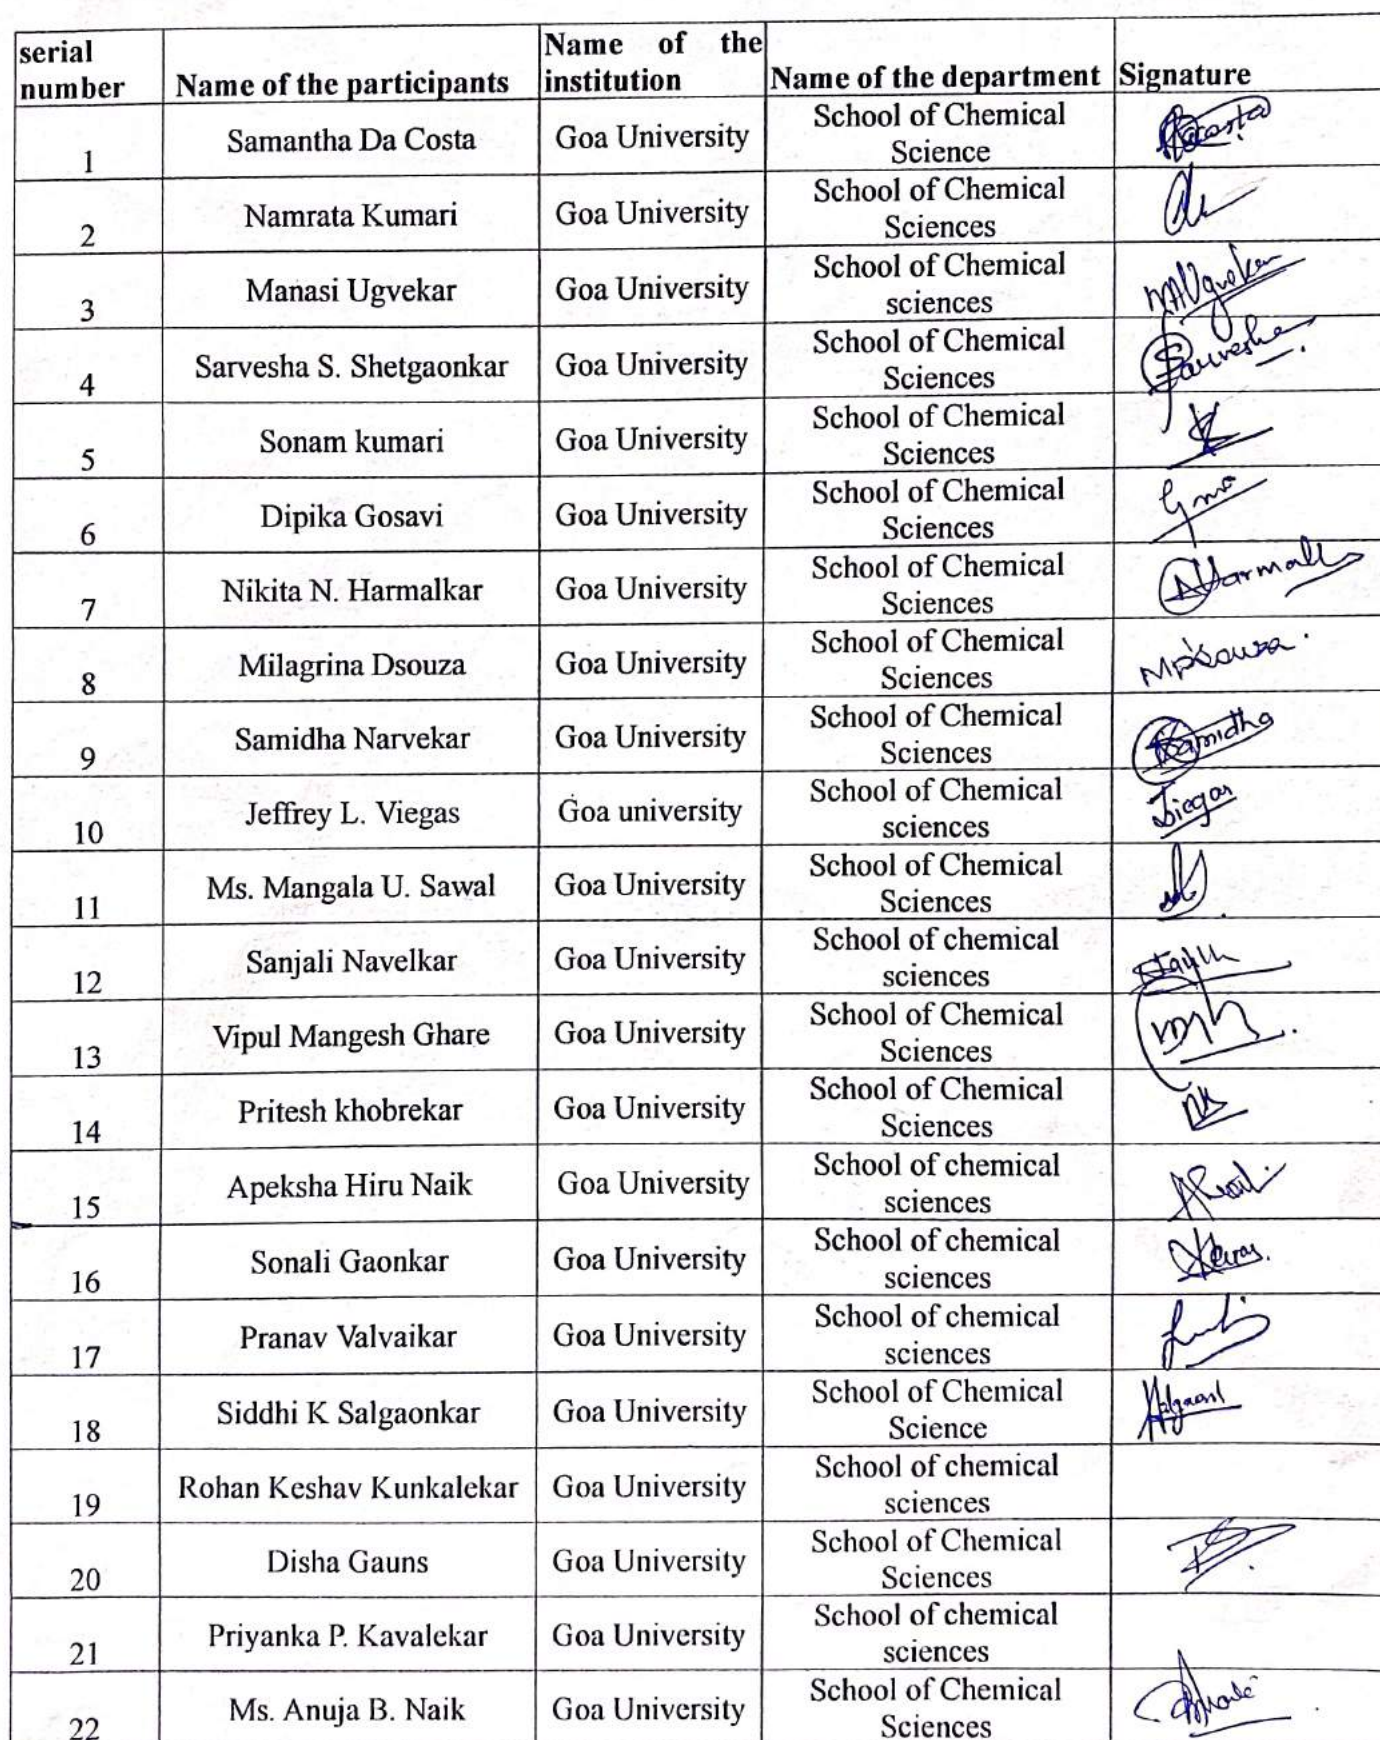 serial number | Name of the participants | Name of the institution | Name of the department | Signature
1 | Samantha Da Costa | Goa University | School of Chemical Science | Dacosta
2 | Namrata Kumari | Goa University | School of Chemical Sciences
3 | Manasi Ugvekar | Goa University | School of Chemical sciences | MAUgvekar
4 | Sarvesha S. Shetgaonkar | Goa University | School of Chemical Sciences | Sarvesha
5 | Sonam kumari | Goa University | School of Chemical Sciences
6 | Dipika Gosavi | Goa University | School of Chemical Sciences
7 | Nikita N. Harmalkar | Goa University | School of Chemical Sciences
8 | Milagrina Dsouza | Goa University | School of Chemical Sciences
9 | Samidha Narvekar | Goa University | School of Chemical Sciences | Samidha
10 | Jeffrey L. Viegas | Goa university | School of Chemical sciences | Viegas
11 | Ms. Mangala U. Sawal | Goa University | School of Chemical Sciences
12 | Sanjali Navelkar | Goa University | School of chemical sciences
13 | Vipul Mangesh Ghare | Goa University | School of Chemical Sciences
14 | Pritesh khobrekar | Goa University | School of Chemical Sciences
15 | Apeksha Hiru Naik | Goa University | School of chemical sciences
16 | Sonali Gaonkar | Goa University | School of chemical sciences
17 | Pranav Valvaikar | Goa University | School of chemical sciences
18 | Siddhi K Salgaonkar | Goa University | School of Chemical Science
19 | Rohan Keshav Kunkalekar | Goa University | School of chemical sciences
20 | Disha Gauns | Goa University | School of Chemical Sciences
21 | Priyanka P. Kavalekar | Goa University | School of chemical sciences
22 | Ms. Anuja B. Naik | Goa University | School of Chemical Sciences